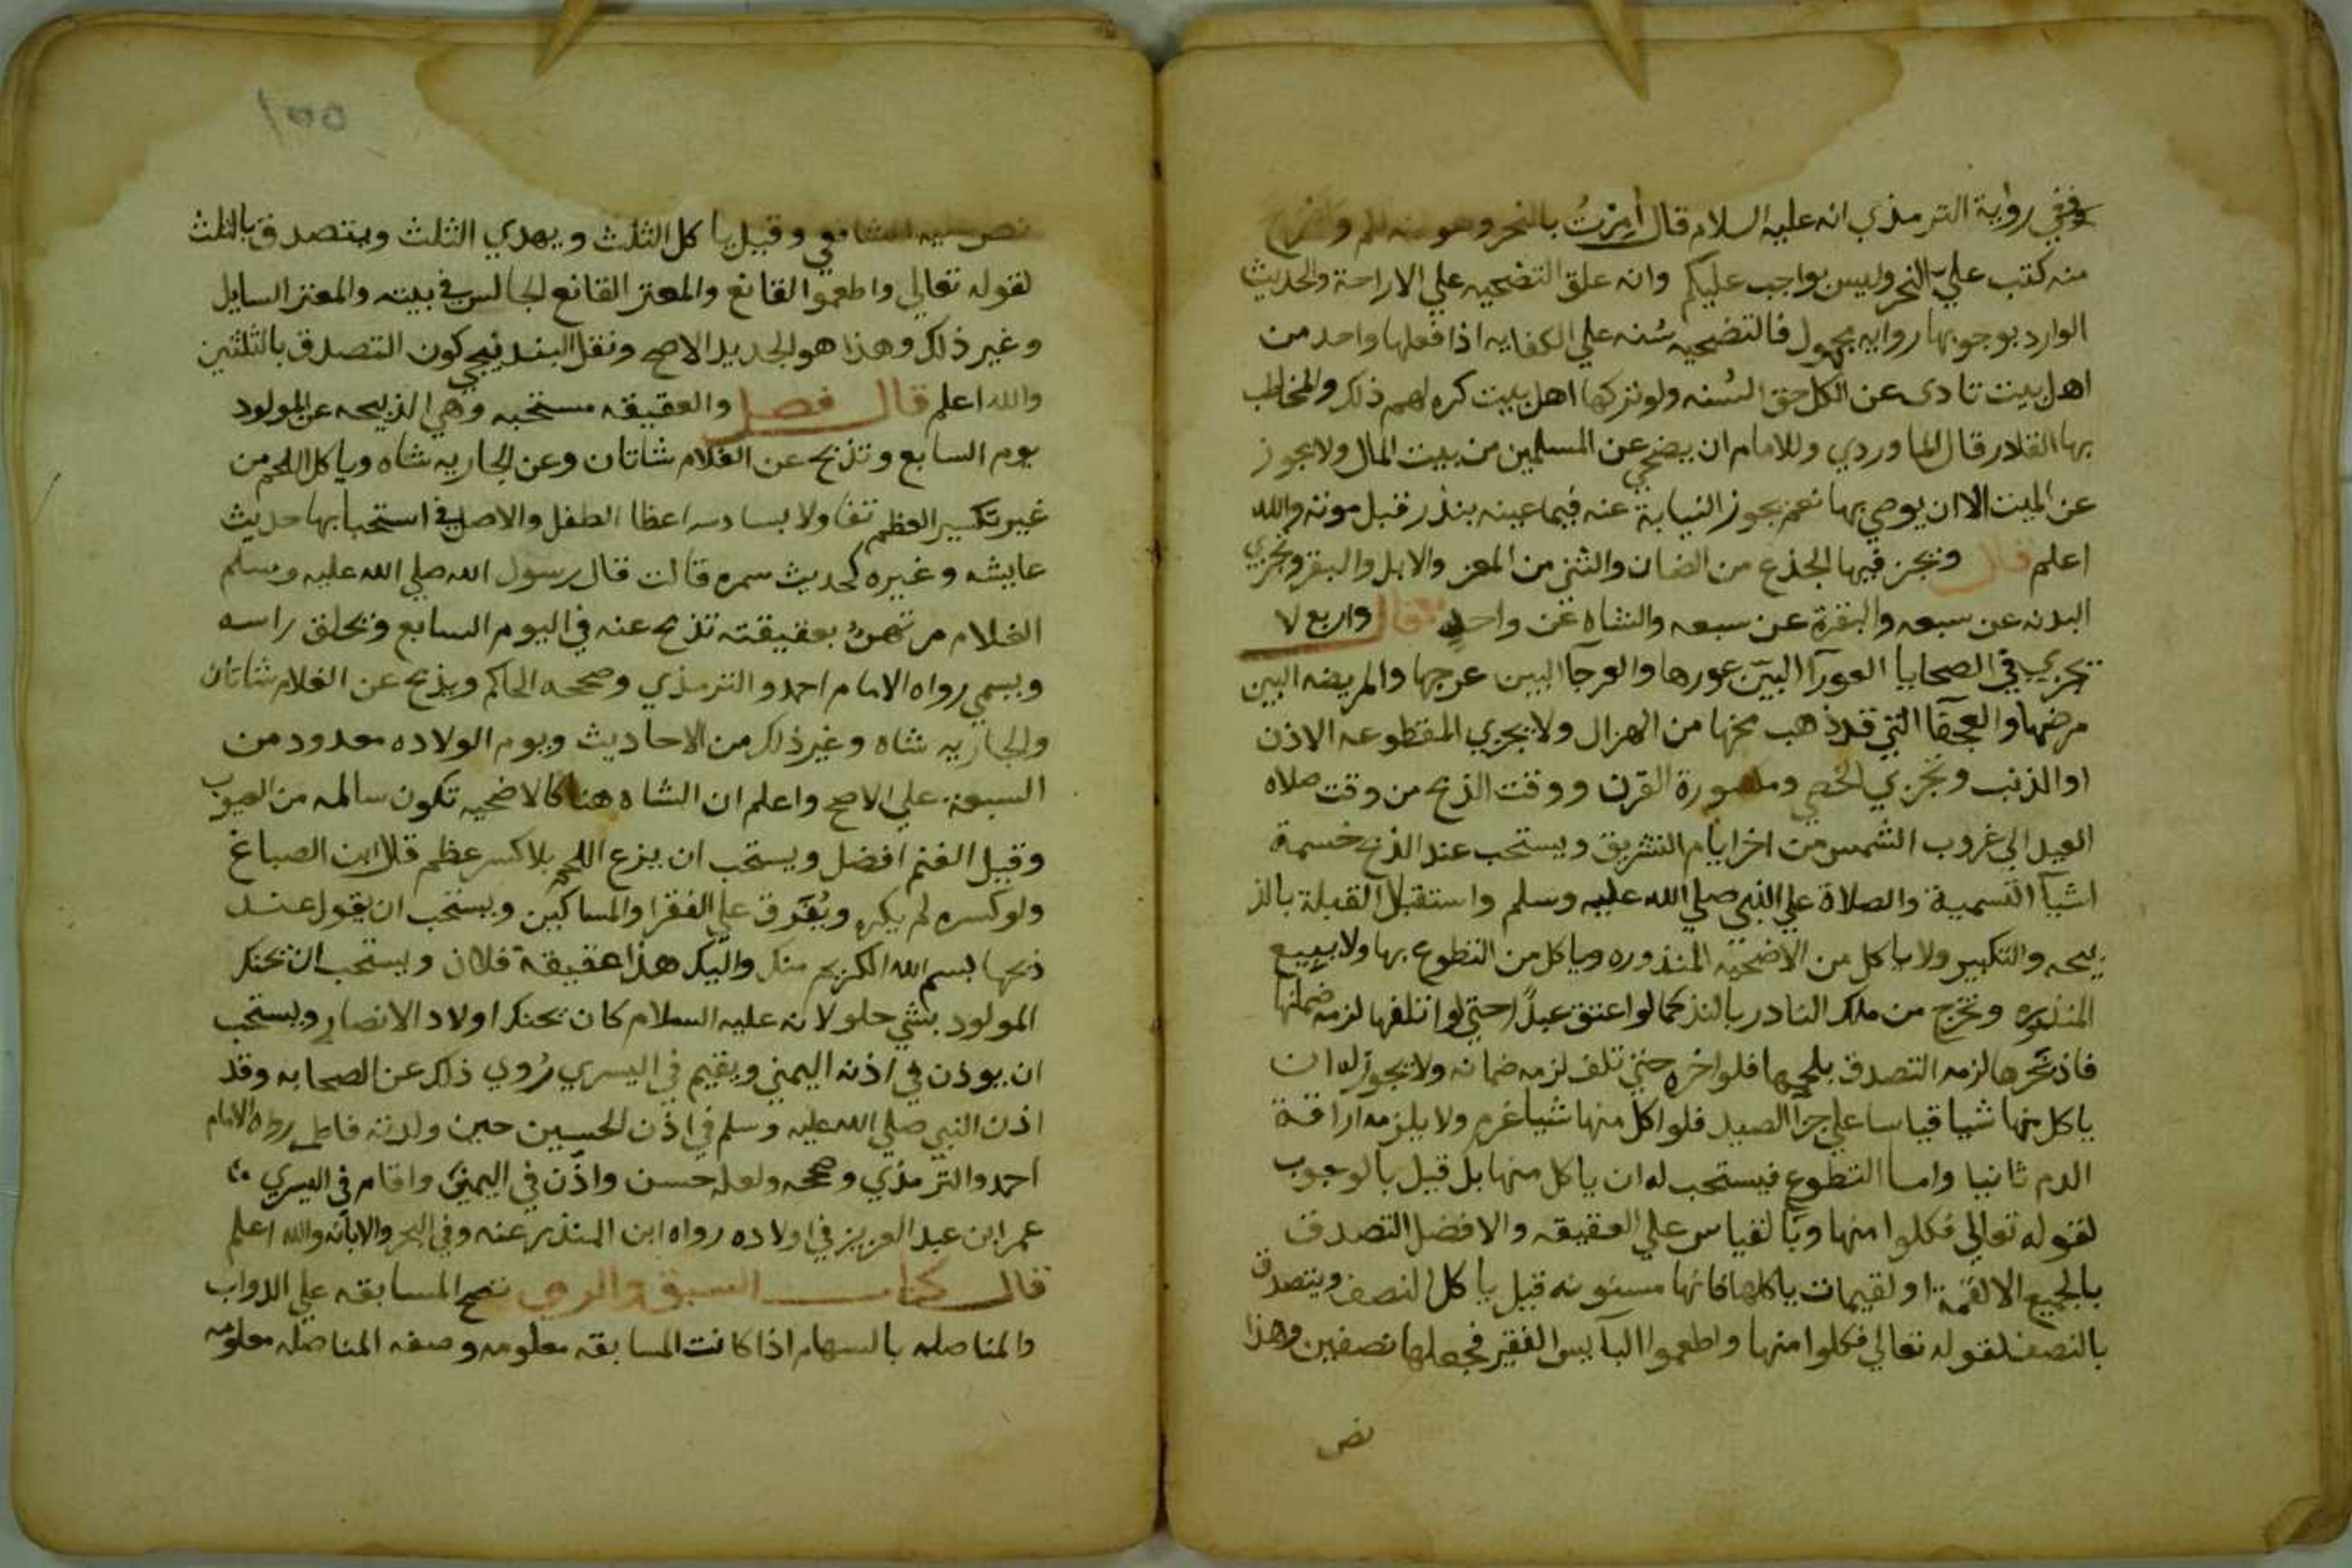 وففي رواية الترمذي انه عليه السلام قال أمِرْتُ بالنحر وهو سنه لكم
منه كتب علي النحر وليس بواجب عليكم وانه علق التضحيه علي الارادة والحديث
الوارد بوجوبها روايه مجهول فالتضحيه سُنه علي الكفايه اذا فعلها واحد من
اهل بيت تادى عن الكل حق السُنه ولو تركها اهل بيت كره لهم ذلك والمخاطب
بها القادر قال الماوردي وللامام ان يضحي عن المسلمين من بيت المال ولا يجوز
عن الميت الا ان يوصي بها نعم يجوز النيابة عنه فيما عينه بنذر قبل موته والله
اعلم قال ويجز فيها الجذع من الضان والثني من المعز والابل والبقر وتجزي
البدنه عن سبعه والبقرة عن سبعه والشاه عن واحد قال واربع لا
تجزي في الضحايا العورآ البيّن عورها والعرجآ البين عرجها والمريضه البين
مرضها والعجفآ التي قد ذهب مخها من الهزال ولا يجزي المقطوعه الاذن
او الذنب وتجزي الخصي ومكسورة القرن ووقت الذبح من وقت صلاه
العيد الي غروب الشمس من اخر ايام التشريق ويستحب عند الذبح خسمة
اشيآ التسمية والصلاة علي النبي صلي الله عليه وسلم واستقبال القبلة بالذ
بيحه والتكبير ولا ياكل من الاضحيه المنذوره وياكل من التطوع بها ولا يبيع
المنذوره وتخرج من ملك النادر بالنذر كما لو اعتق عبدًا حتي لو اتلفها لزمه ضمانها
فاذ نحرها لزمه التصدق بلحمها فلو اخره حتي تلف لزمه ضمانه ولا يجوز له ان
ياكل منها شيا قياسا علي جزآ الصيد فلو اكل منها شيا غرم ولا يلزمه اراقة
الدم ثانيا واما التطوع فيستحب له ان ياكل منها بل قيل بالوجوب
لقوله تعالي فكلوا منها وبالقياس علي العقيقه والافضل التصدق
بالجميع الا لقمة او لقيمات ياكلها فانها مسنونه قيل ياكل النصف ويتصدق
بالنصف لقوله تعالي فكلوا منها واطعموا البآيس الفقير فجعلها نصفين وهذا
نص
١٥٥
نص عليه الشافعي وقيل ياكل الثلث ويهدي الثلث ويتصدق بالثلث
لقوله تعالي واطعموا القانع والمعتر القانع الجالس في بيته والمعتر السايل
وغير ذلك وهذا هو الجديد الاصح ونقل البندنيجي كون التصدق بالثلثين
والله اعلم قال فصل والعقيقه مستحبه وهي الذبيحه عن المولود
يوم السابع وتذبح عن الغلام شاتان وعن الجاريه شاه وياكل اللحم من
غير تكسير العظم تفاولا بسلامه اعظا الطفل والاصل في استحبابها حديث
عايشه وغيره كحديث سمره قالت قال رسول الله صلي الله عليه وسلم
الغلام مرتهنٌ بعقيقته تذبح عنه في اليوم السابع ويحلق راسه
ويسمي رواه الامام احمد والترمذي وصححه الحاكم ويذبح عن الغلام شاتان
والجاريه شاه وغير ذلك من الاحاديث ويوم الولاده معدود من
السبعه علي الاصح واعلم ان الشاه هنا كالاضحيه تكون سالمه من العيوب
وقيل الغنم افضل ويستحب ان ينزع اللحم بلا كسر عظم قال ابن الصباغ
ولو كسره لم يكره ويُفَرق علي الفقرا والمساكين ويستحب ان يقول عند
ذبحها بسم الله الكريم منك واليك هذا عقيقة فلان ويستحب ان تحنك
المولود بشي حلو لانه عليه السلام كان يحنك اولاد الانصار ويستحب
ان يوذن في اذنه اليمني ويقيم في اليسري رُوي ذلك عن الصحابه وقد
اذن النبي صلي الله عليه وسلم في اذن الحسين حين ولدته فاطمه رواه الامام
احمد والترمذي وصححه ولعله حسن واذّن في اليمني واقام في اليسري
عمر ابن عبد العزيز في اولاده رواه ابن المنذر عنه وفي البحر والابانه والله اعلم
قال كتاب السبق والرمي تصح المسابقه علي الدواب
والمناصله بالسهام اذا كانت المسابقه معلومه وصفه المناصله معلومه